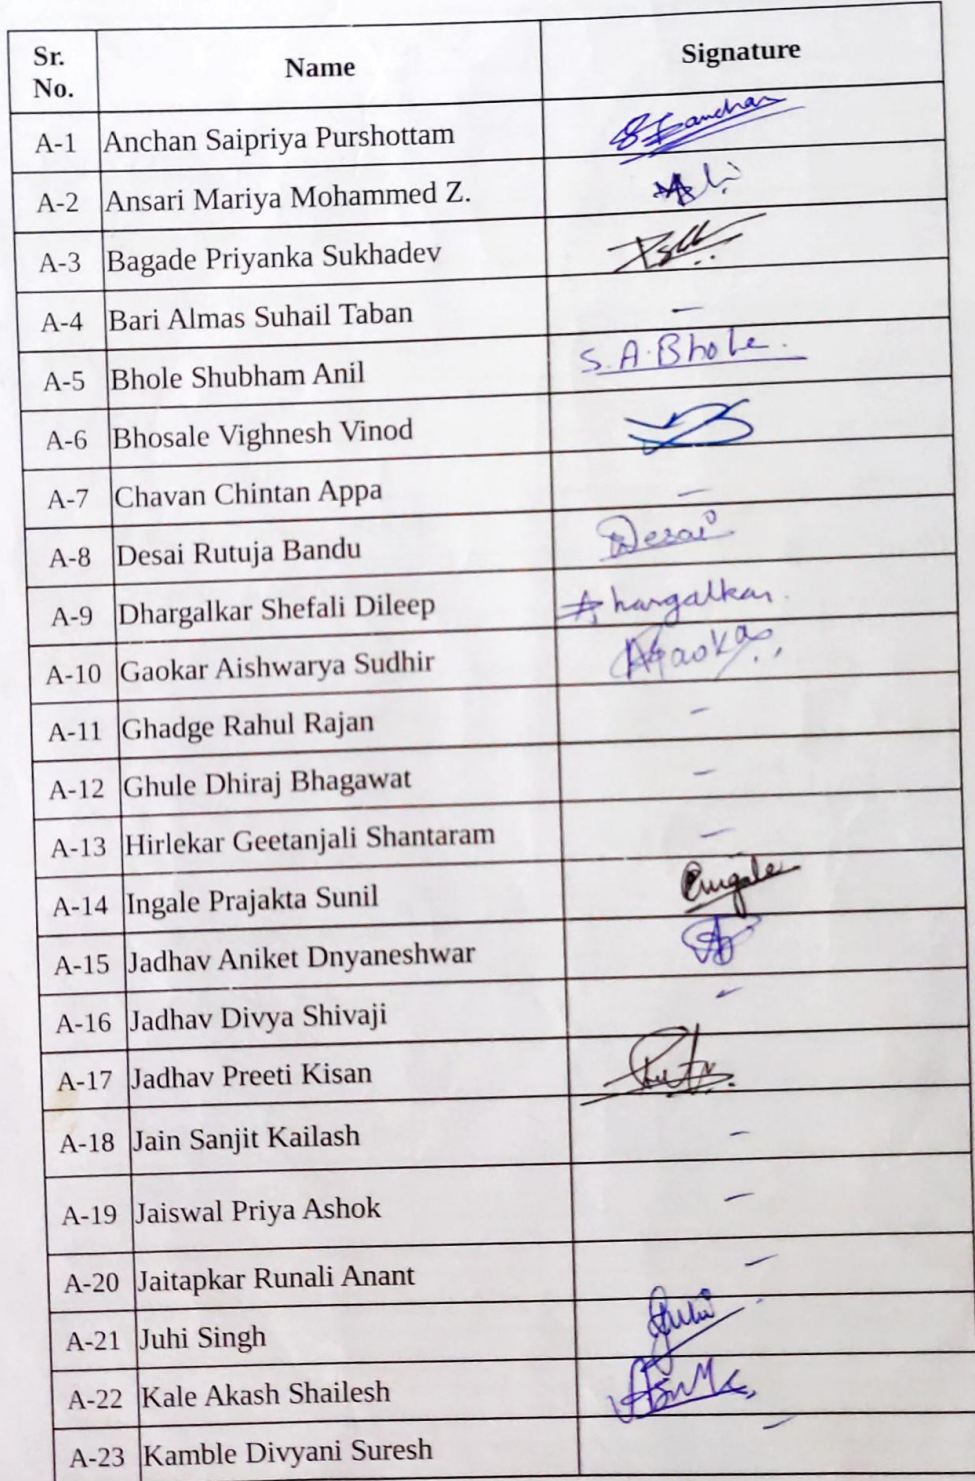 Sr. No. Name Signature
A-1 Anchan Saipriya Purshottam
A-2 Ansari Mariya Mohammed Z.
A-3 Bagade Priyanka Sukhadev
A-4 Bari Almas Suhail Taban -
A-5 Bhole Shubham Anil S.A.Bhole.
A-6 Bhosale Vighnesh Vinod
A-7 Chavan Chintan Appa -
A-8 Desai Rutuja Bandu Desai
A-9 Dhargalkar Shefali Dileep Dhargalkar.
A-10 Gaokar Aishwarya Sudhir AGaokar
A-11 Ghadge Rahul Rajan -
A-12 Ghule Dhiraj Bhagawat -
A-13 Hirlekar Geetanjali Shantaram -
A-14 Ingale Prajakta Sunil
A-15 Jadhav Aniket Dnyaneshwar
A-16 Jadhav Divya Shivaji -
A-17 Jadhav Preeti Kisan
A-18 Jain Sanjit Kailash -
A-19 Jaiswal Priya Ashok -
A-20 Jaitapkar Runali Anant -
A-21 Juhi Singh Juhi
A-22 Kale Akash Shailesh
A-23 Kamble Divyani Suresh -